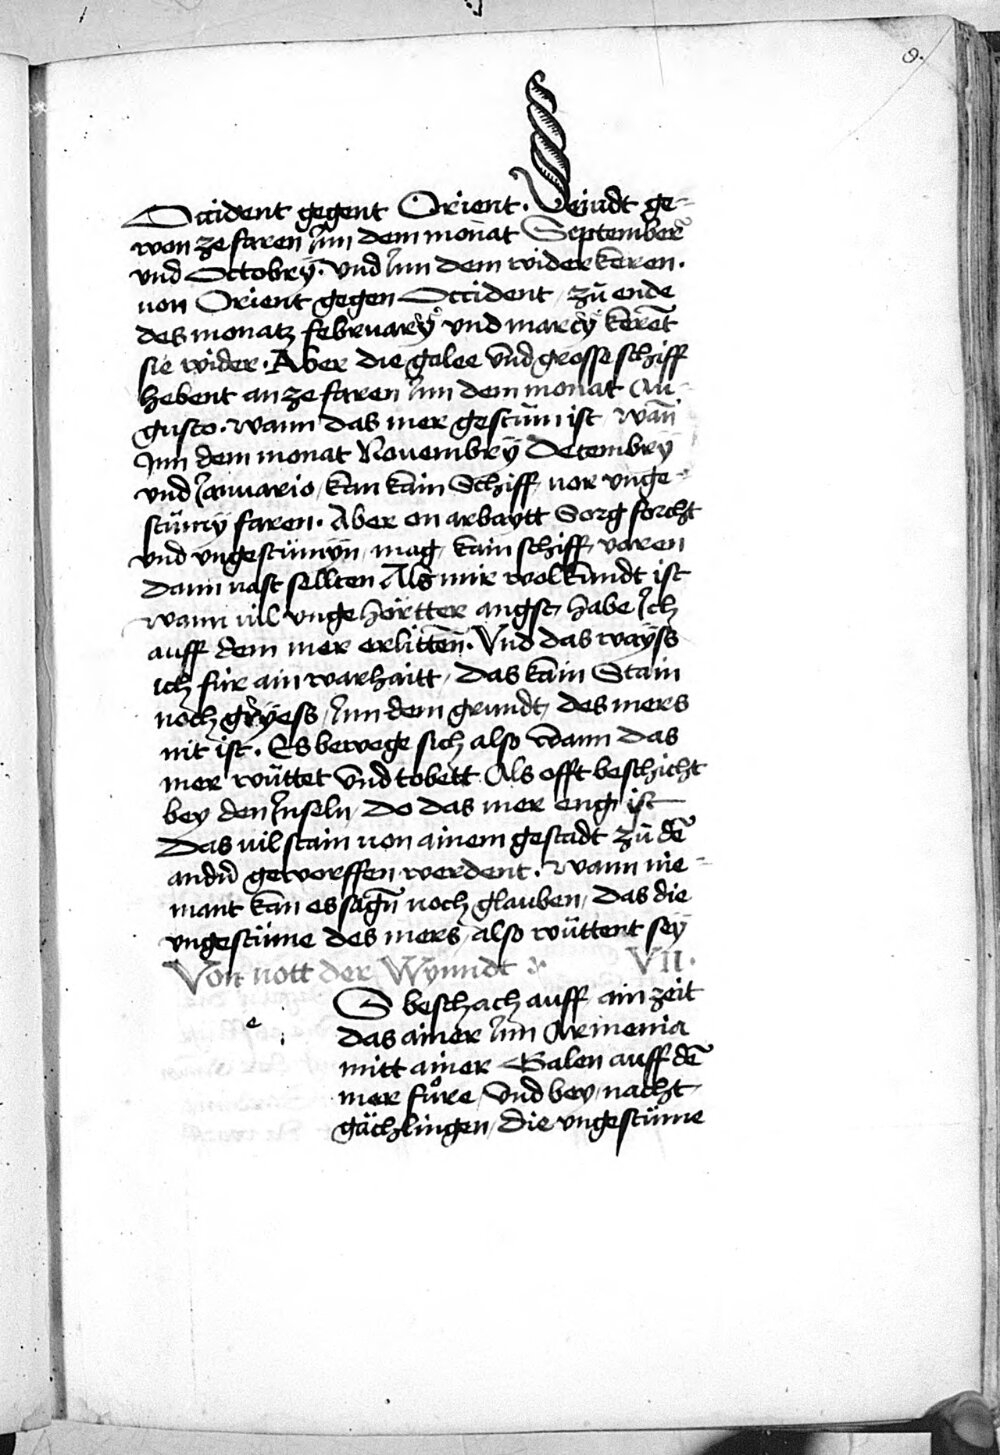 8.
Occident gegent Orient. Seindt ge-
won ze faren Inn dem monat September
vnd Octobrÿ. vnd Inn dem widerkeren.
von Orient gegen Occident, zů ende
des monatz februarÿ vnd marcÿ keret
sie wider. Aber die galee vnd grosse schiff
hebent an ze faren Inn dem monat Au-
gusto. wann das mer gestüm ist, wañ
Inn dem monat Nouembrÿ Decembrÿ
vnd Januario, kan kain Schiff, vor vnge-
stümÿ faren. Aber on arbaytt Sorg forcht
vnd vngestümÿn, mag, kain schiff, varen
dann vast sellten Als mir wol kundt ist
wann vil vngehörtter angst, habe Ich
auff dem mer erlitten. Vnd das wayss
ich für ain warhaitt, das kain Stain
noch gryess, Inn dem grundt, des mers
nit ist. Es bewege sich also wann das
mer wüttet vnd tobett Als offt beschicht
bey den Inseln, do das mer eng ist
Das vil stain von ainem gestadt zů dē
andn̄ geworffen werdent. wann nie-
mant kan es sagn̄ noch glauben, das die
vngestüme des mers, also wüttent seÿ
Von nott der Wynndt VII.
e
S beschach auff ain zeit
das ainer Inn Armenia
mitt ainer Galen auff dē
mer fůre, vnd bey, nacht
gächlingen, die vngestüme